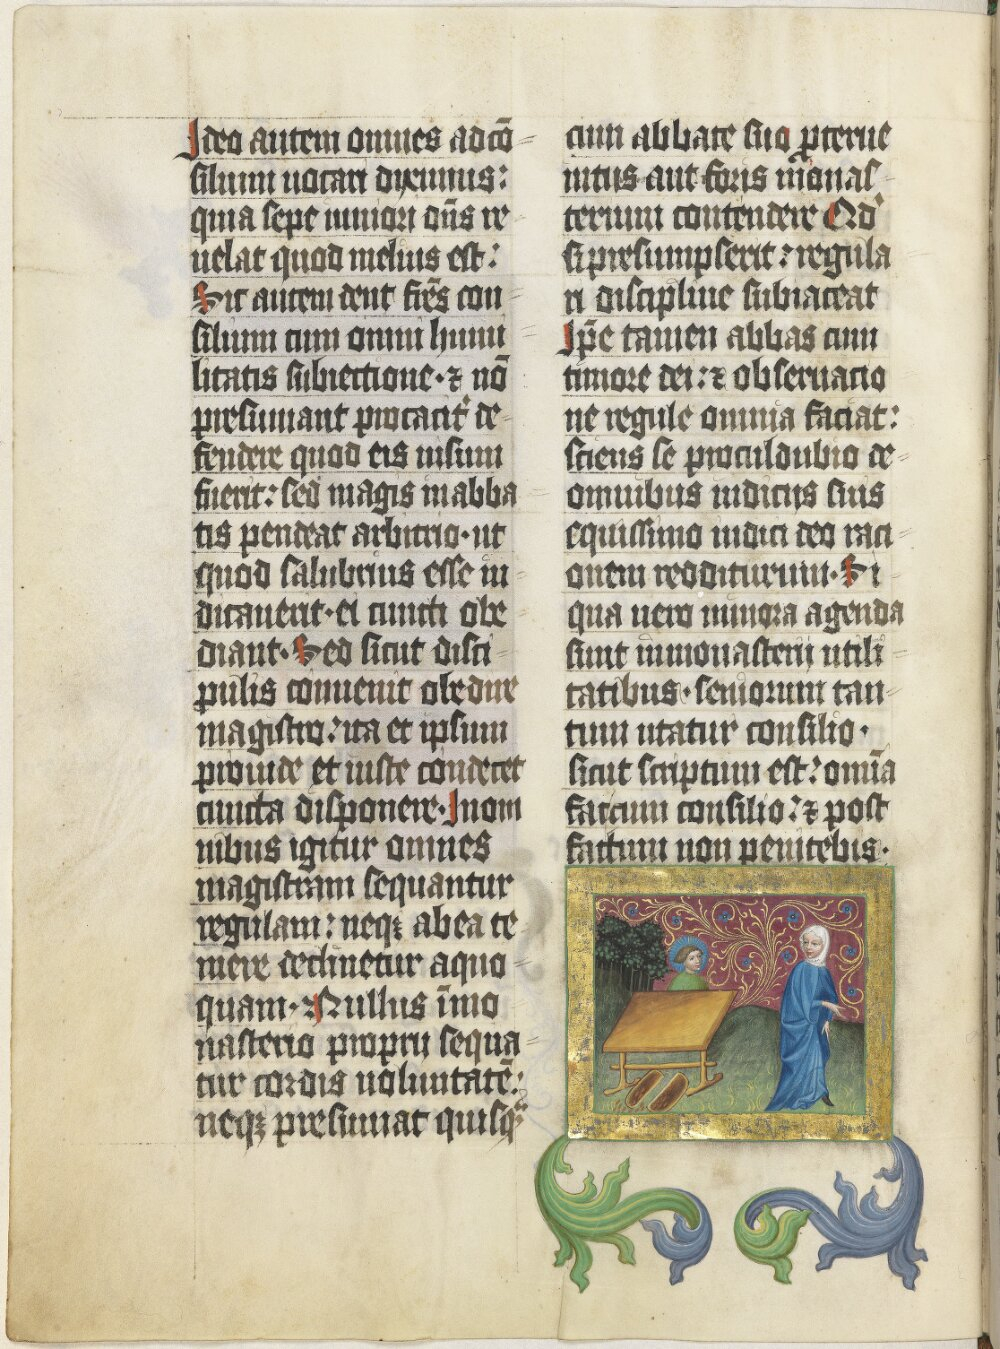 Ideo autem omnes ad cō
silium uocari diximus:
quia sepe iuniori dn̄s re
uelat quod melius est:
Sic autem dent fr̄es con
silium cum omni humi
litatis subiectione · ⁊ nō
presumant procacit᷑ de
fendere quod eis uisum
fuerit: sed magis in abba
tis pendeat arbitrio · ut
quod salubrius esse iu
dicauerit · ei cuncti obe
diant · Sed sicut disci
pulis conuenit obedire
magistro: ita et ipsum
prouide et iuste condecet
cuncta disponere · In om
nibus igitur omnes
magistram sequantur
regulam: neqꝫ ab ea te
mere declinetur a quo
quam · Nullus ī mo
nasterio proprii sequa
tur cordis uoluntatē:
neqꝫ presumat quisqᷓ
cum abbate suo pterue
intus aut foris mᷓonas
terium contendere Qd'
si presumpserit: regula
ri discipline subiaceat
Ip̄e tamen abbas cum
timore dei: ⁊ obseruatio
ne regule omnia faciat:
sciens se proculdubio de
omnibus iudiciis suis
equissimo iudici deo raci
onem redditurum · Si
qua uero minora agenda
sunt in monasterii utili
tatibus · seniorum tan
tum utatur consilio ·
sicut scriptum est: om̄ia
fac cum consilio: ⁊ post
factum non penitebis ·